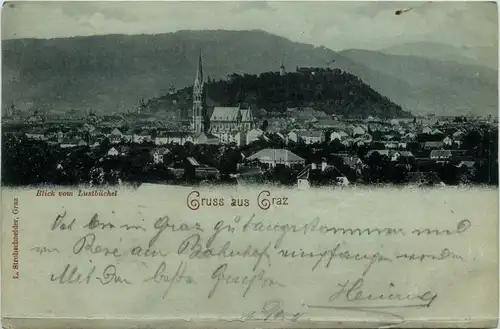 Blick vom Lustbüchel
Gruss aus Graz
L. Strohschneider, Graz
bin in Graz gut angekommen und
von Resi am Bahnhof empfangen worden.
Mit besten Grüßen